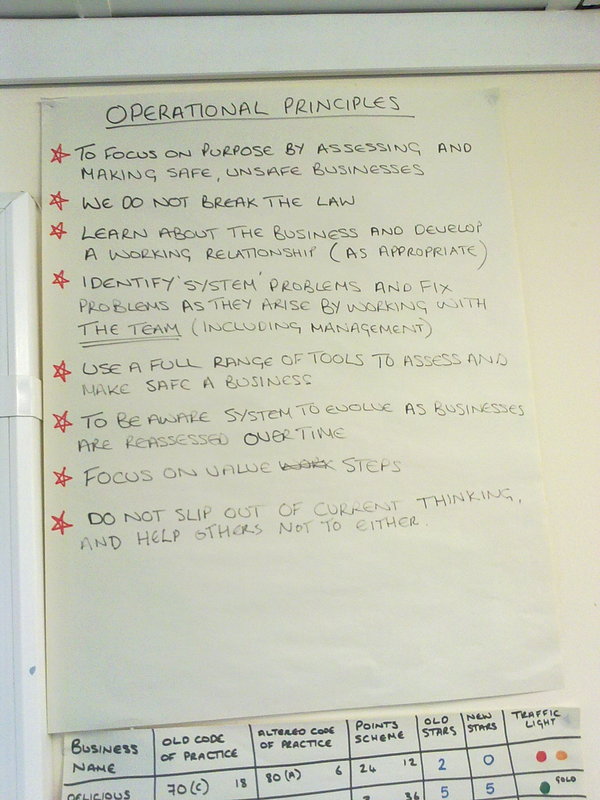 OPERATIONAL PRINCIPLES
TO FOCUS ON PURPOSE BY ASSESSING AND
MAKING SAFE, UNSAFE BUSINESSES
WE DO NOT BREAK THE LAW
LEARN ABOUT THE BUSINESS AND DEVELOP
A WORKING RELATIONSHIP (AS APPROPRIATE)
IDENTIFY 'SYSTEM' PROBLEMS AND FIX
PROBLEMS AS THEY ARISE BY WORKING WITH
THE TEAM (INCLUDING MANAGEMENT)
USE A FULL RANGE OF TOOLS TO ASSESS AND
MAKE SAFE A BUSINESS
TO BE AWARE SYSTEM TO EVOLVE AS BUSINESSES
ARE REASSESSED OVER TIME
FOCUS ON VALUE WORK STEPS
DO NOT SLIP OUT OF CURRENT THINKING,
AND HELP OTHERS NOT TO EITHER.
BUSINESS NAME OLD CODE OF PRACTICE ALTERED CODE OF PRACTICE POINTS SCHEME OLD STARS NEW STARS TRAFFIC LIGHT
24 12 2 0
DELICIOUS 70(C) 18 80(A) 6 36 5 5 GOLD